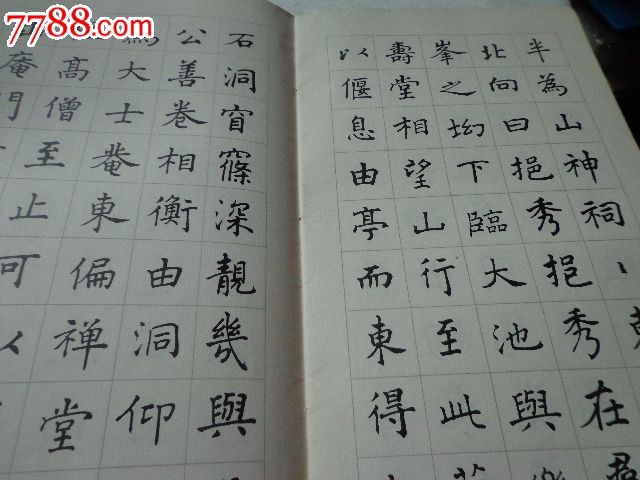 7788.com
半為山神祠
北向曰挹秀挹秀在
峯之坳下臨大池與
壽堂相望山行至此
以偃息由亭而東得
石洞窅窱深靚幾與
公善卷相衡由洞仰
為大士菴東偏禅堂
高僧至止可以
庵門